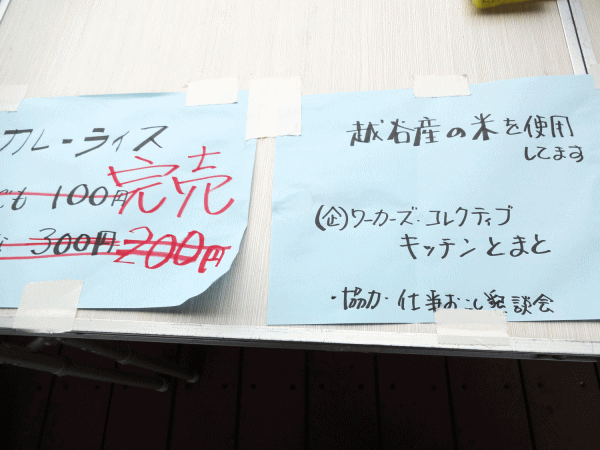 カレーライス
ども 100円
完売
300円 200円
越谷産の米を使用
してます
(企)ワーカーズ・コレクティブ
キッチンとまと
・協力・仕事おこし懇談会